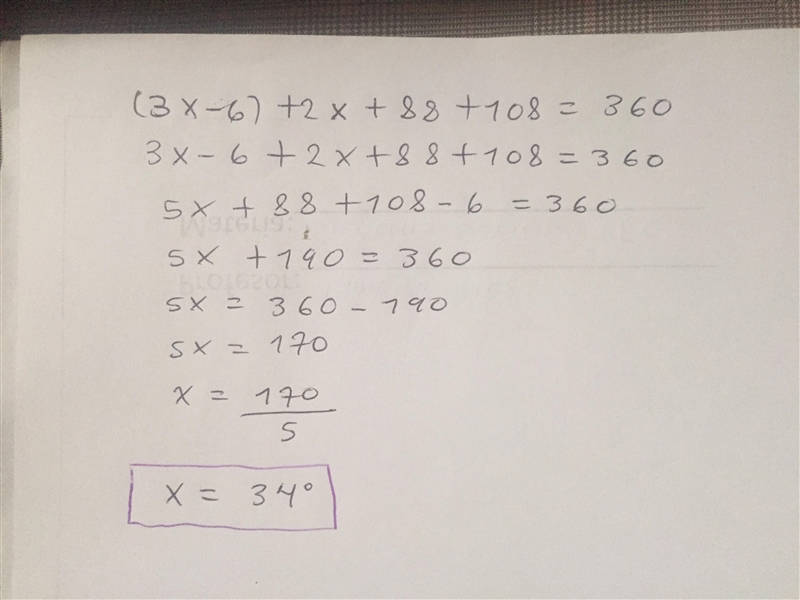 (3x-6) +2x + 88 +108 = 360
3x - 6 + 2x + 88 + 108 = 360
5x + 88 + 108 - 6 = 360
Materia:
5x + 190 = 360
Profesor:
5x = 360 - 190
5x = 170
x = 170
5
x = 34°